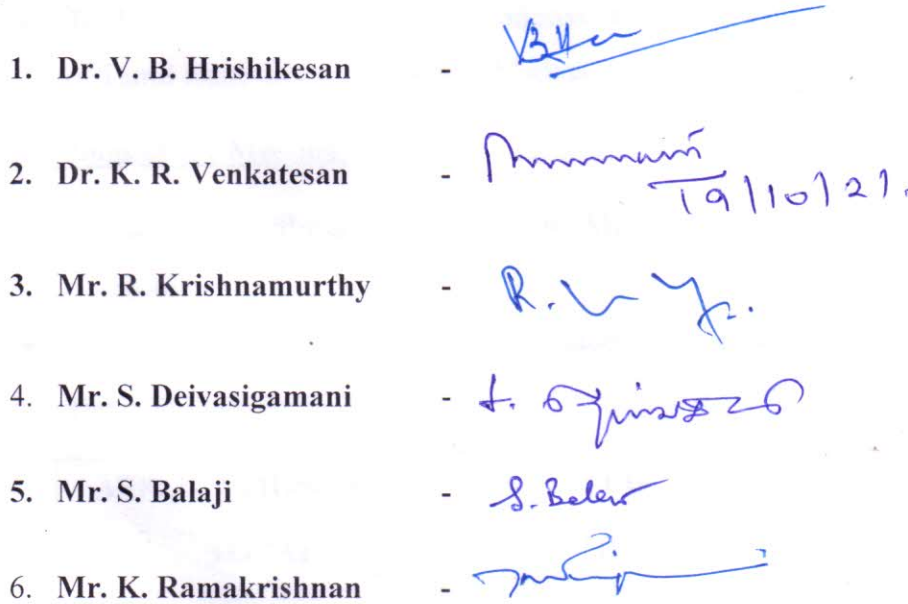 1. Dr. V. B. Hrishikesan -
2. Dr. K. R. Venkatesan -
19/10/21.
3. Mr. R. Krishnamurthy - R.
4. Mr. S. Deivasigamani -
5. Mr. S. Balaji - S.
6. Mr. K. Ramakrishnan -